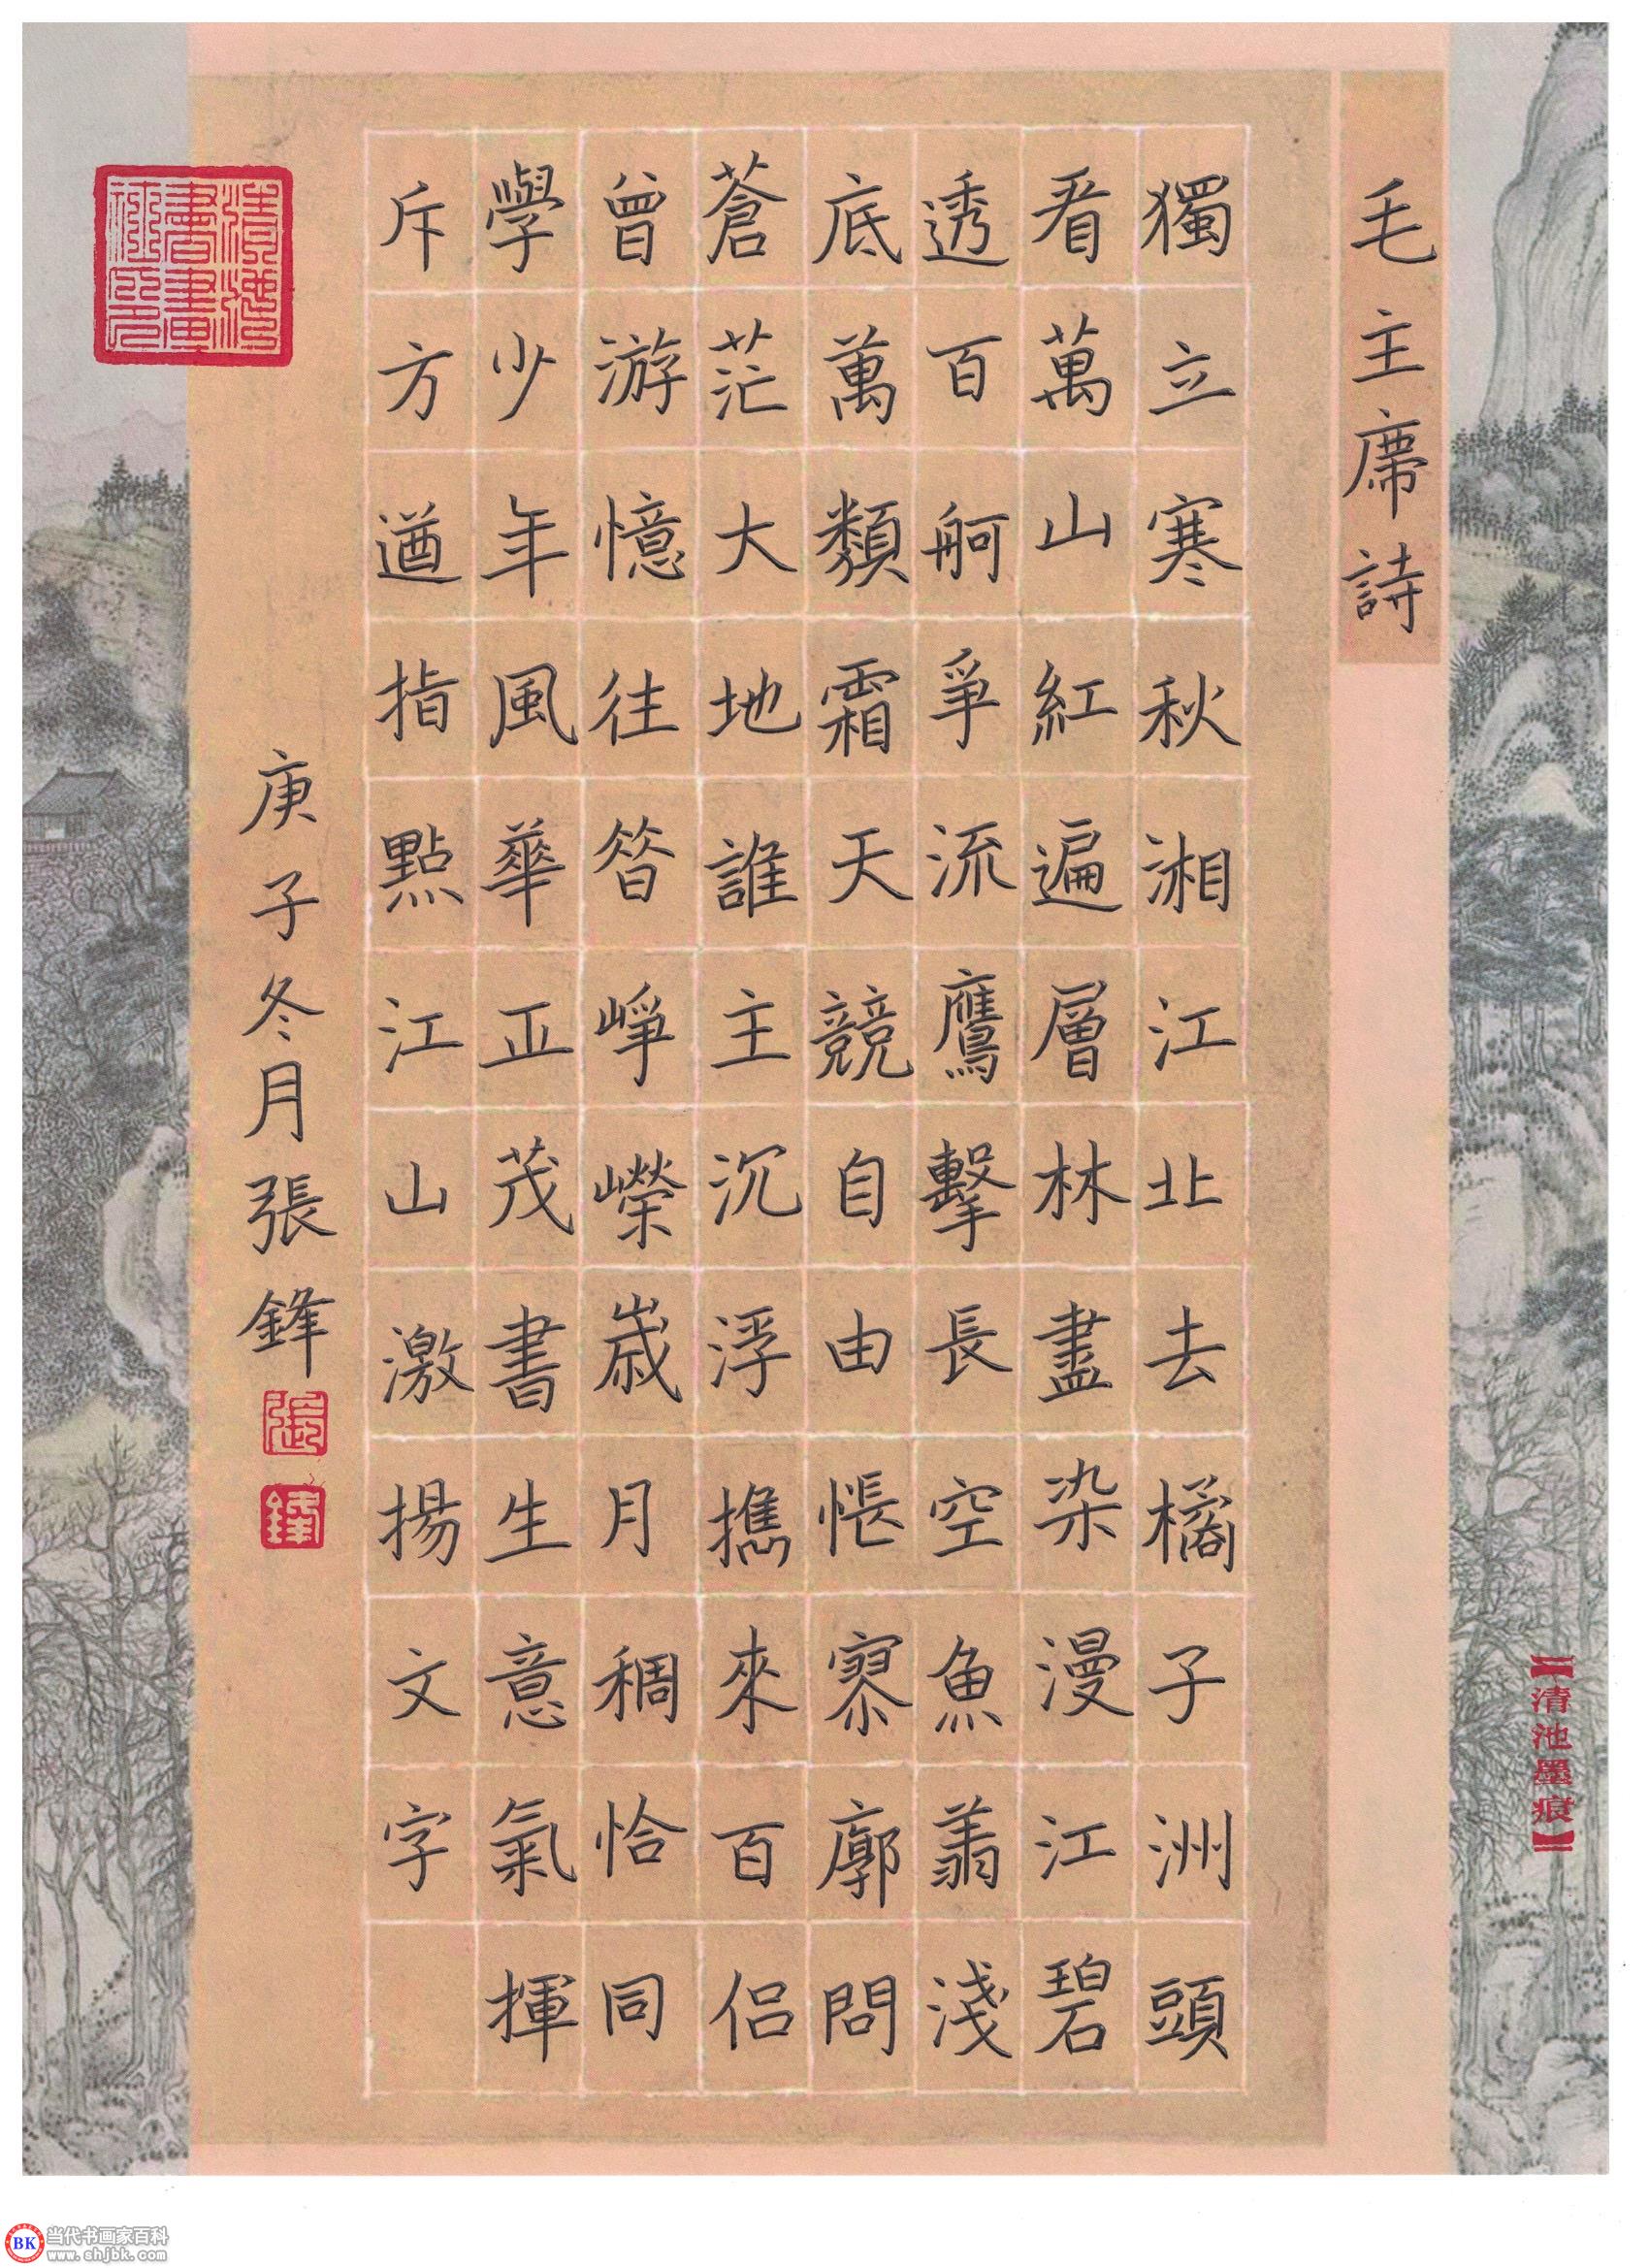 毛主席詩
獨立寒秋湘江北去橘子洲頭
看萬山紅遍層林盡染漫江碧
透百舸爭流鷹擊長空魚翔淺
底萬類霜天競自由悵寥廓問
蒼茫大地誰主沉浮攜來百侶
曾游憶往昔崢嶸歲月稠恰同
學少年風華正茂書生意氣揮
斥方遒指點江山激揚文字
庚子冬月張鋒
張
鋒
【清池墨痕】
BK
当代书画家百科
www.shjbk.com